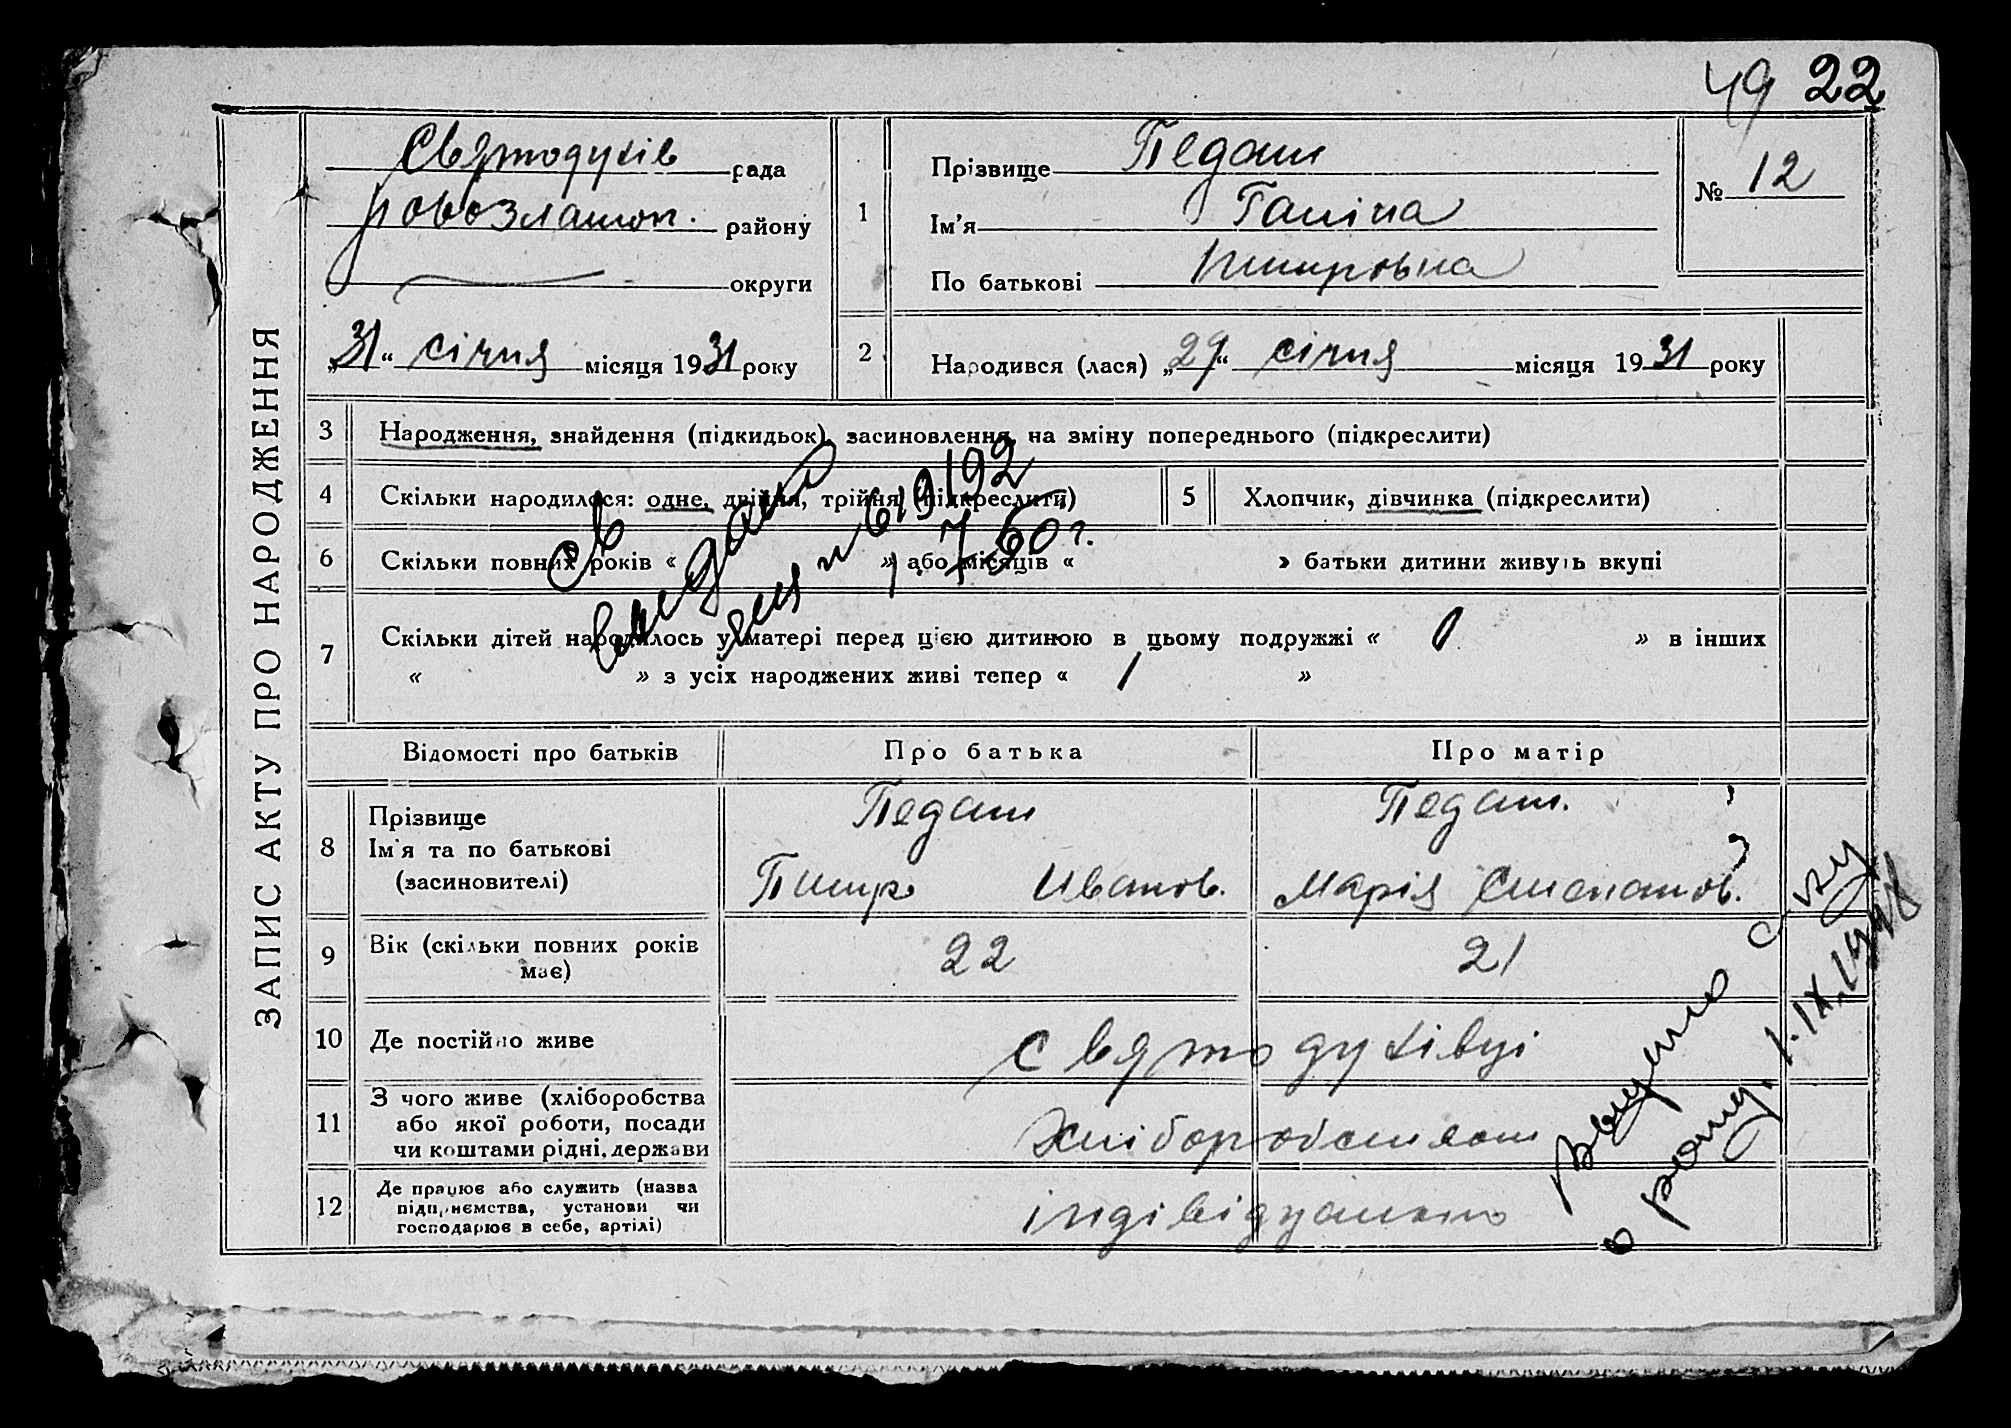 49 22
ЗАПИС АКТУ ПРО НАРОДЖЕННЯ
Святодухів рада
Новозлатоп. району
округи
„31“ січня місяця 1931 року
1
Прізвище Педаш
Ім'я Галіна
По батькові
№ 12
2
Народився (лася) „29“ січня місяця 1931 року
3 Народження, знайдення (підкидьок), засиновлення, на зміну попереднього (підкреслити)
4 Скільки народилося: одне, двійня, трійня (підкреслити)
5 Хлопчик, дівчинка (підкреслити)
6 Скільки повних років « » або місяців « » батьки дитини живуть вкупі
7 Скільки дітей народилось у матері перед цією дитиною в цьому подружжі « » в інших
« » з усіх народжених живі тепер « 1 »
Св
выдано
1.7.60 г.
Відомості про батьків
Про батька
Про матір
8
Прізвище
Ім'я та по батькові
(засиновителі)
Педаш
Иванов.
Педаш.
Марія Степанов.
9 Вік (скільки повних років має)
22
21
10 Де постійно живе
Святодухівці
11 З чого живе (хліборобства
або якої роботи, посади
чи коштами рідні, держави
Хліборобством
12 Де працює або служить (назва
підприємства, установи чи
господарює в себе, артілі)
індівідуально
Выдано
1.IX.1948